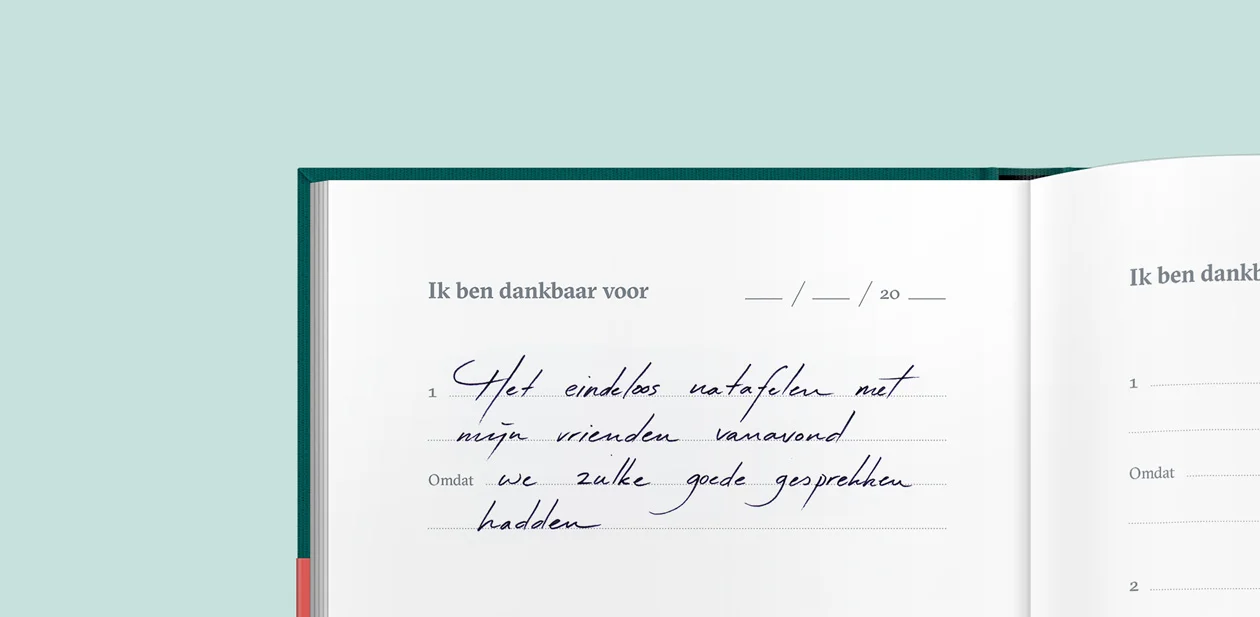 Ik ben dankbaar voor ___ / ___ / 20 ___
1 Het eindeloos natafelen met
mijn vrienden vanavond
Omdat we zulke goede gesprekken
hadden
Ik ben dankb
1
Omdat
2